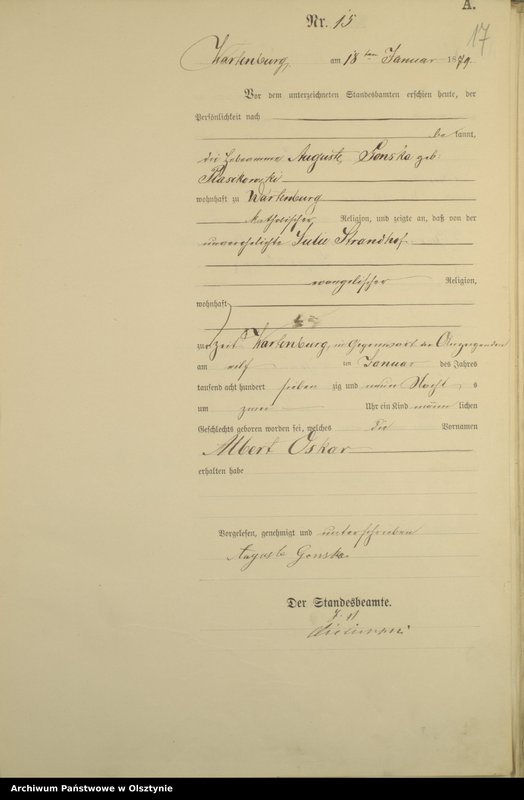 A.
Nr. 15
17
Wartenburg, am 18ten Januar 1879.
Vor dem unterzeichneten Standesbeamten erschien heute, der
Persönlichkeit nach
be kannt,
die Hebeamme Auguste Gonska geb:
wohnhaft zu Wartenburg
katholischer Religion, und zeigte an, daß von der
unverehelichte Strandhof
evangelischer Religion,
wohnhaft
zur Zeit Wartenburg, in Gegenwart der Anzeigenden
am elf ten Januar des Jahres
tausend acht hundert sieben zig und neun Nacht s
um zwei Uhr ein Kind männ lichen
Geschlechts geboren worden sei, welches die Vornamen
Albert Oskar
erhalten habe
Vorgelesen, genehmigt und unterschrieben
Auguste Gonska.
Der Standesbeamte.
Archiwum Państwowe w Olsztynie